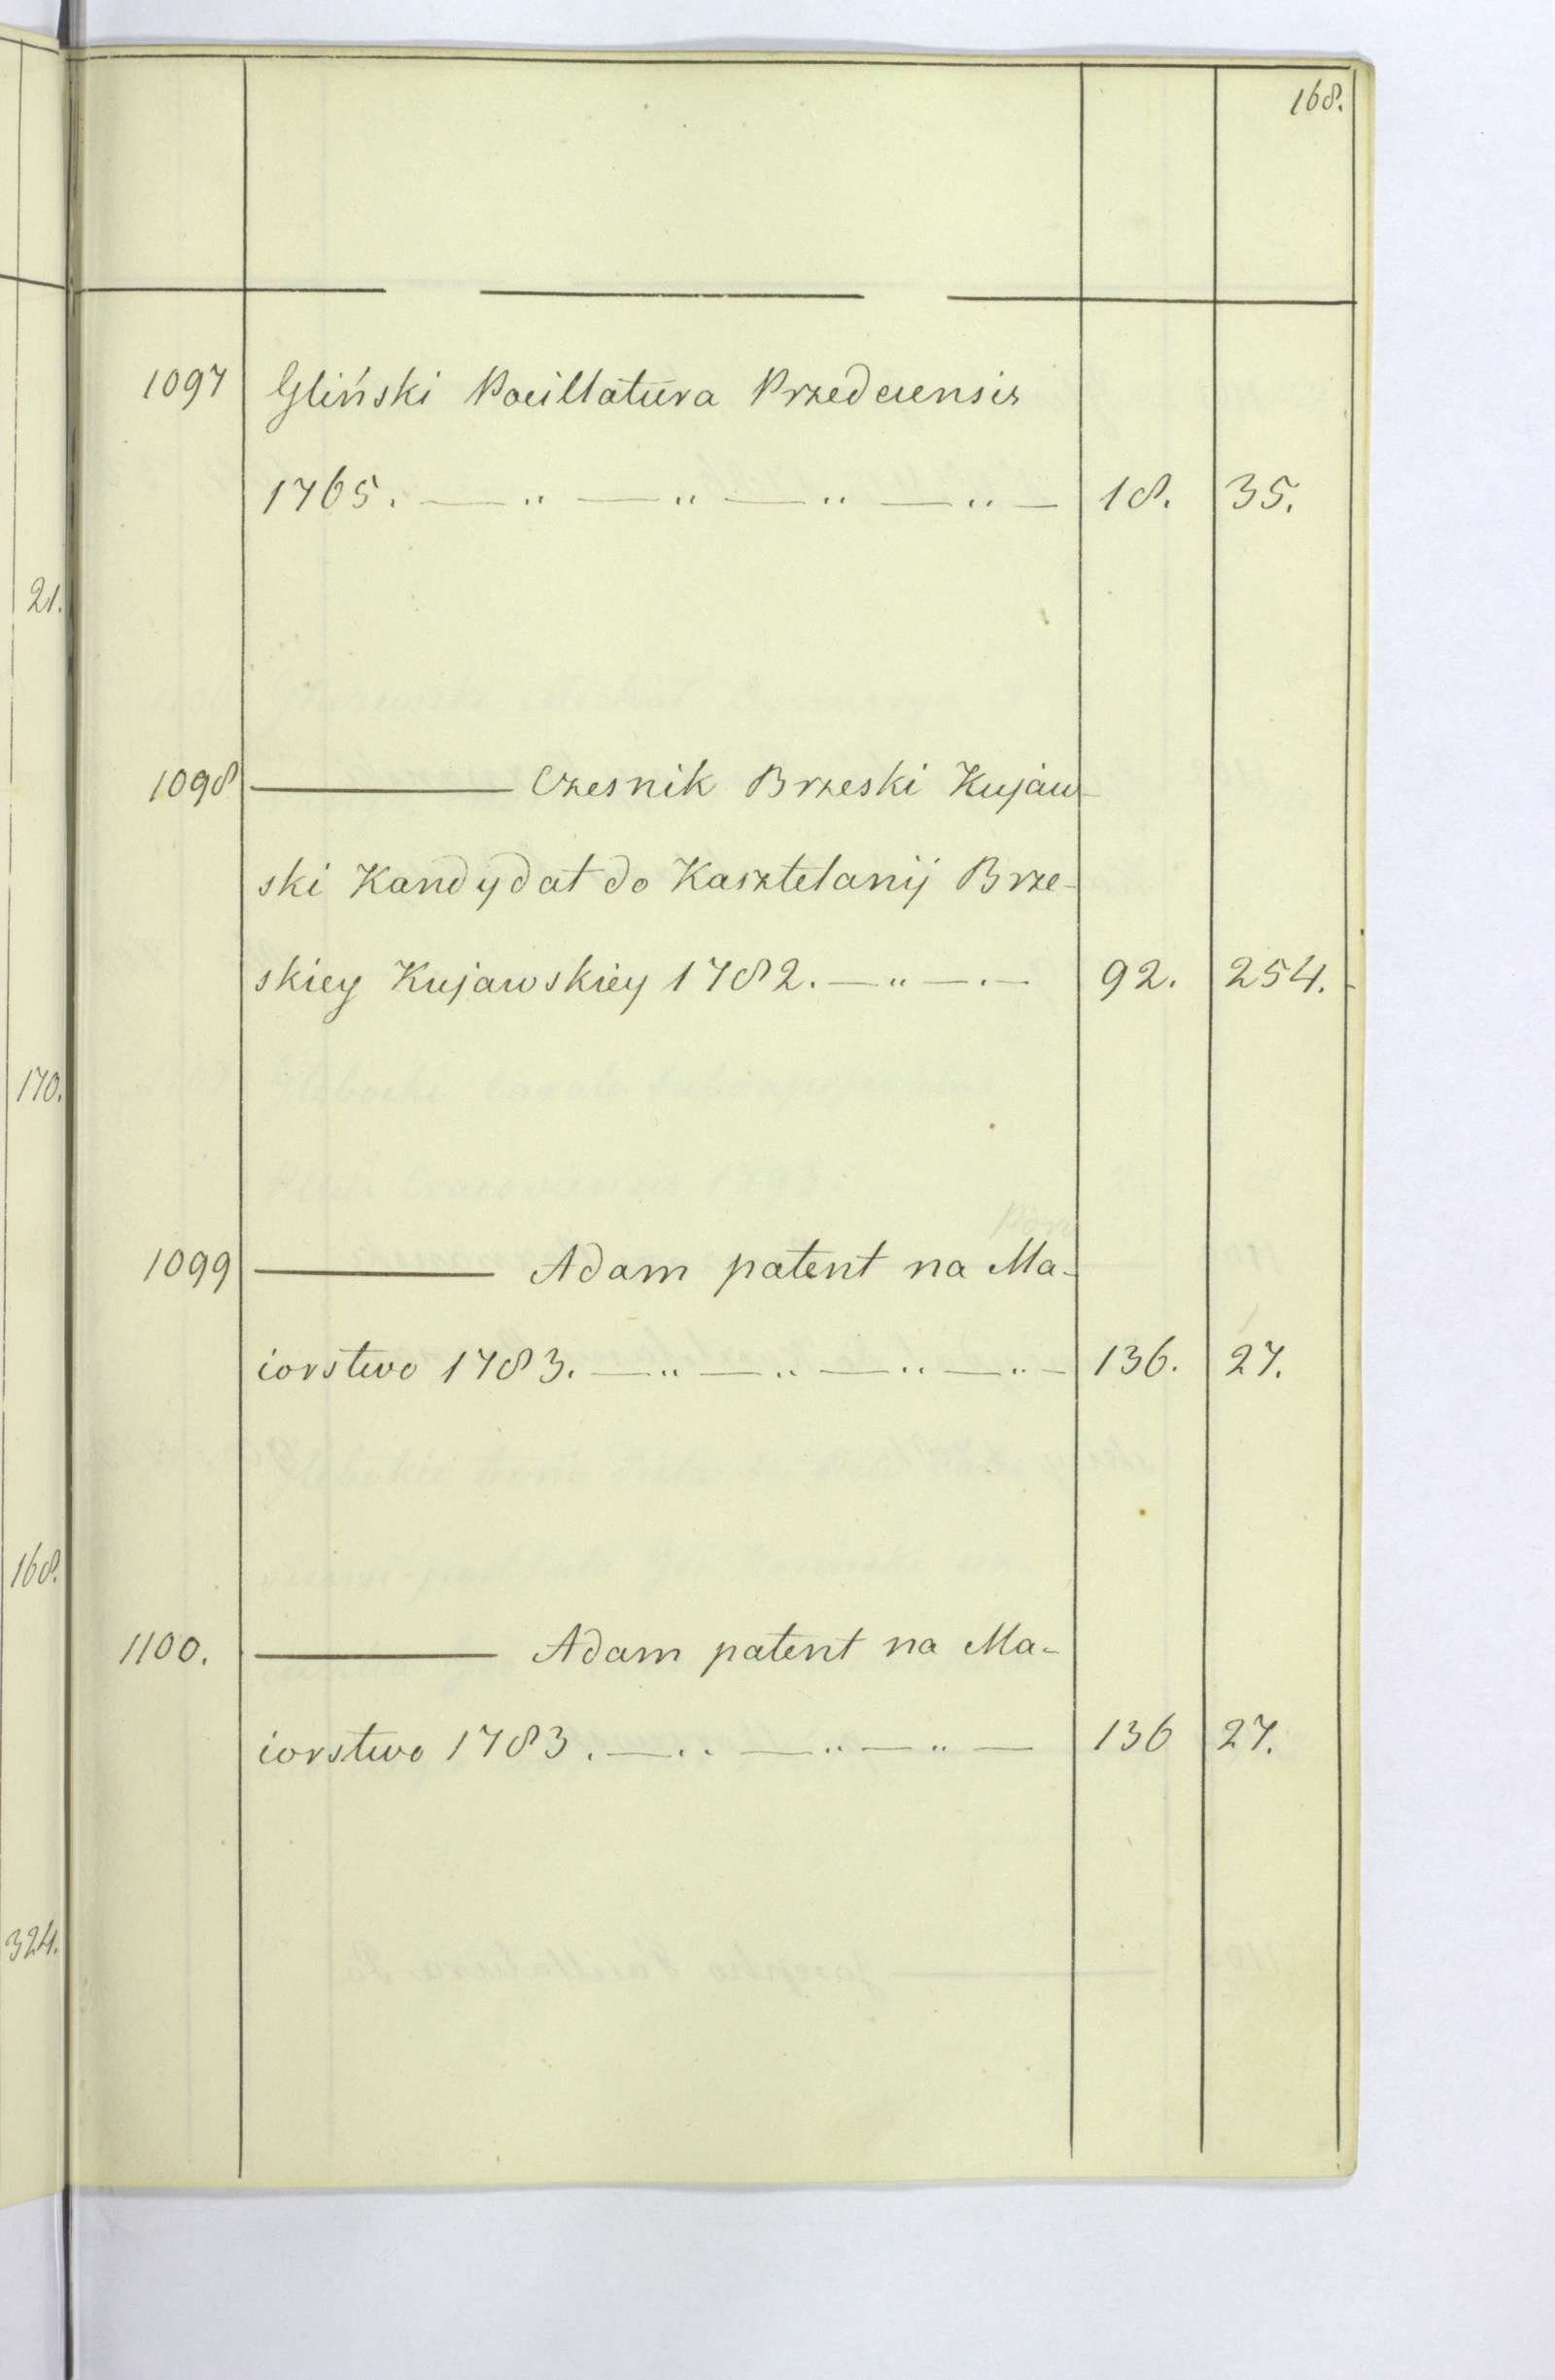 168.
1097 Gliński Pocillatura Przedecensis
1765. — " — " — " — " — 18. 35.
1098 ——— Czesnik Brzeski Kujaw-
ski Kandydat do Kasztelanij Brze-
skiey Kujawskiey 1782. — " — . — 92. 254.
1099 ——— Adam patent na Ma-
iorstwo 1783. — " — " — " — " — 136. 27.
1100. ——— Adam patent na Ma-
iorstwo 1783. — " — " — " — 136 27.
21.
170.
168.
324.